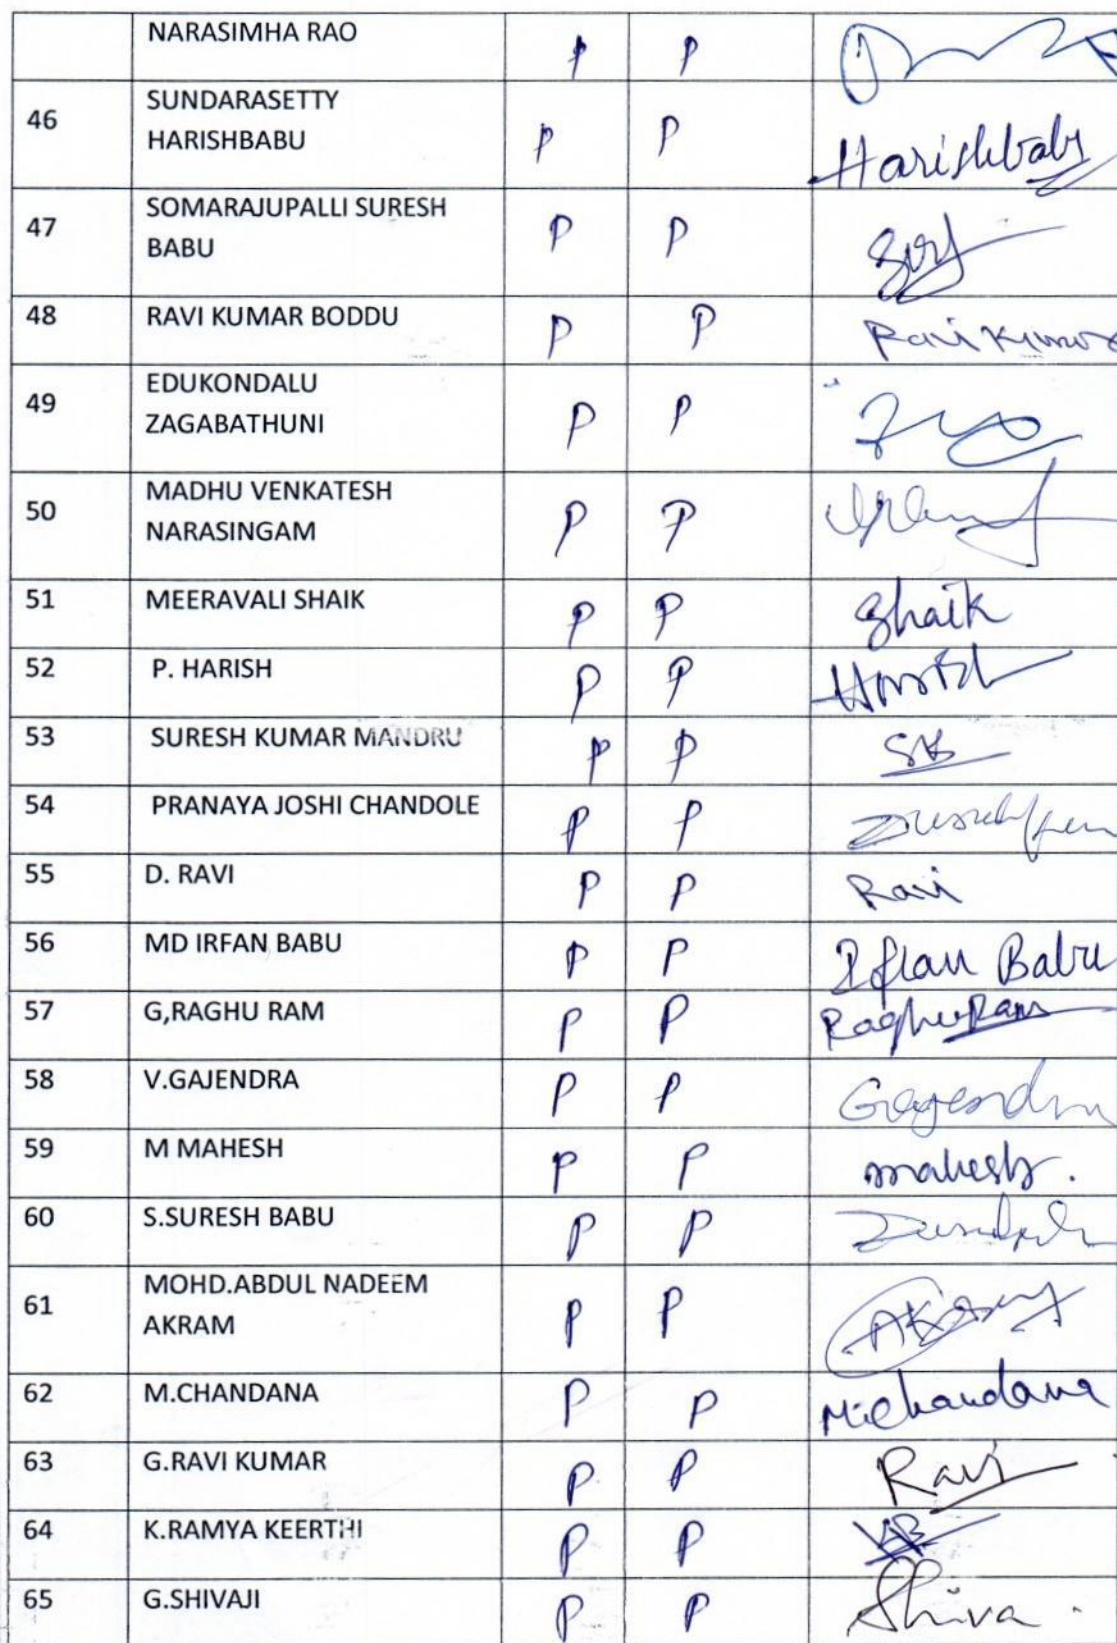 NARASIMHA RAO P P
46 SUNDARASETTY
HARISHBABU P P Harishbabu
47 SOMARAJUPALLI SURESH
BABU P P
48 RAVI KUMAR BODDU P P Ravi Kumar
49 EDUKONDALU
ZAGABATHUNI P P
50 MADHU VENKATESH
NARASINGAM P P
51 MEERAVALI SHAIK P P Shaik
52 P. HARISH P P Harish
53 SURESH KUMAR MANDRU P P
54 PRANAYA JOSHI CHANDOLE P P
55 D. RAVI P P Ravi
56 MD IRFAN BABU P P Irfan Babu
57 G,RAGHU RAM P P RaghuRam
58 V.GAJENDRA P P Gajendra
59 M MAHESH P P mahesh.
60 S.SURESH BABU P P
61 MOHD.ABDUL NADEEM
AKRAM P P
62 M.CHANDANA P P M.Chandana
63 G.RAVI KUMAR P P Ravi
64 K.RAMYA KEERTHI P P
65 G.SHIVAJI P P Shiva